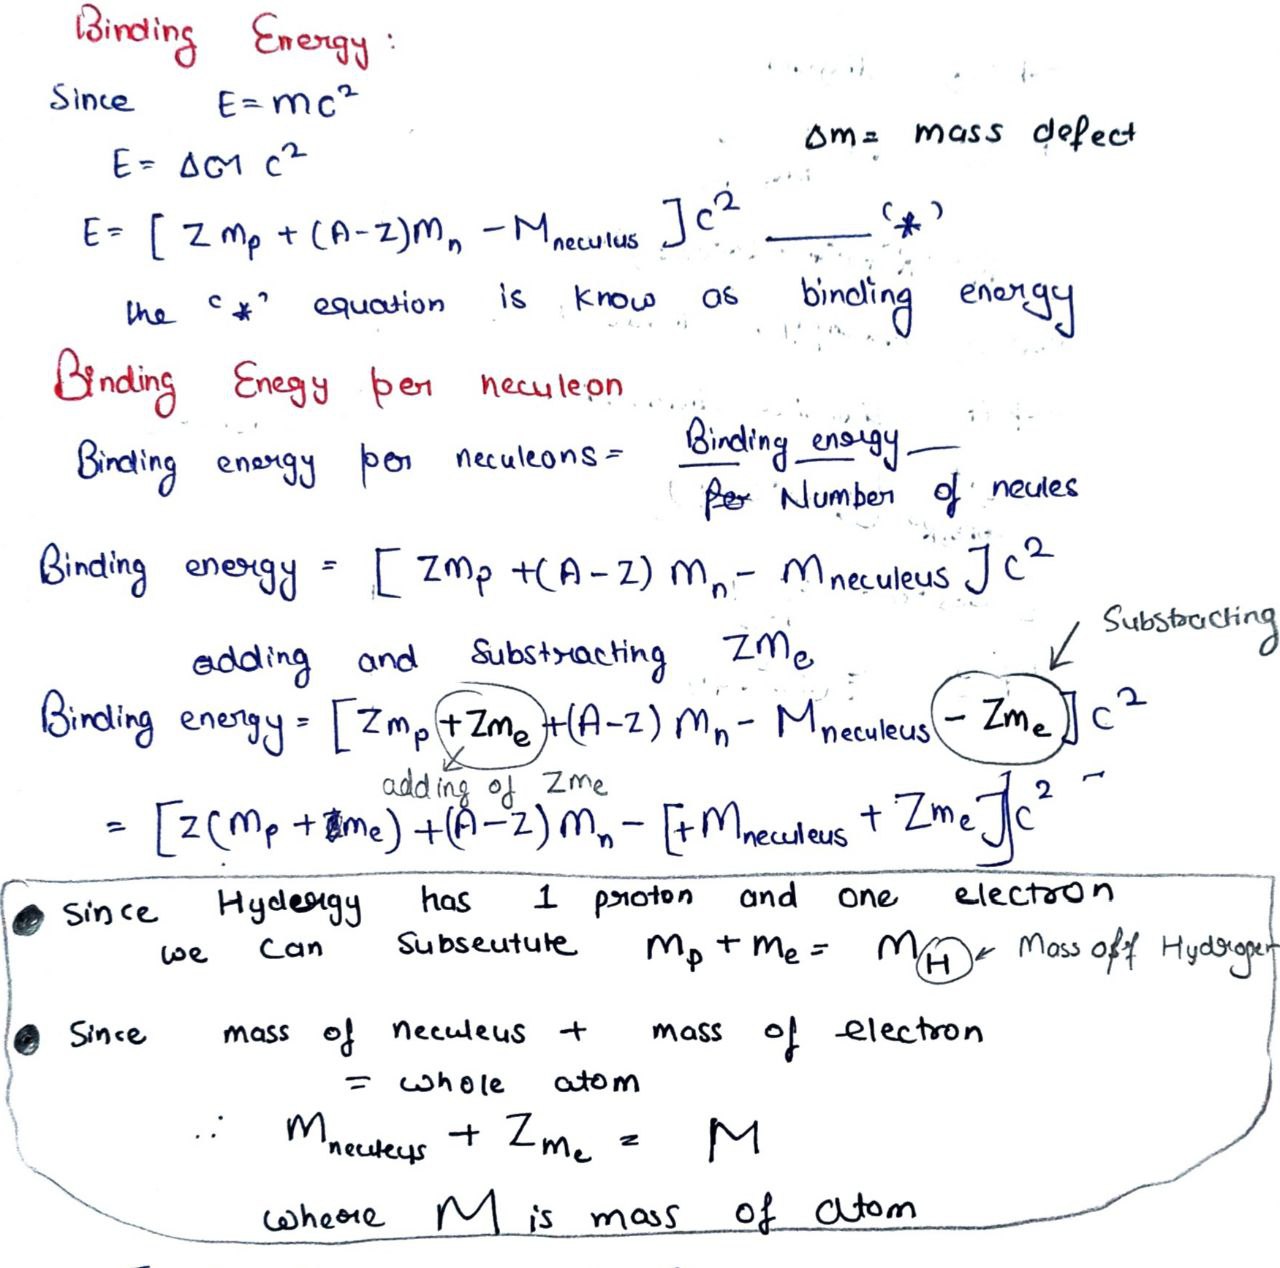 Binding Energy:
Since E = mc²
Δm = mass defect
E = ΔM c²
E = [ Z mp + (A-Z)mn - Mneculus ] c² ____ '*'
the '*' equation is know as binding energy
Binding Enegy per neculeon
Binding energy per neculeons = Binding energy
Per Number of neules
Binding energy = [ Zmp + (A-Z) mn - Mneculeus ] c²
adding and Substracting Zme
Substracting
Binding energy = [ Zmp + Zme + (A-Z) mn - Mneculeus - Zme ] c²
adding of Zme
= [ Z(mp + me) + (A-Z) mn - [+Mneculeus + Zme ] ] c²
Since Hydergy has 1 proton and one electron
we can Subseutute mp + me = mH Mass off Hydrogen
Since mass of neculeus + mass of electron
= whole atom
∴ Mneculeus + Zme = M
where M is mass of atom